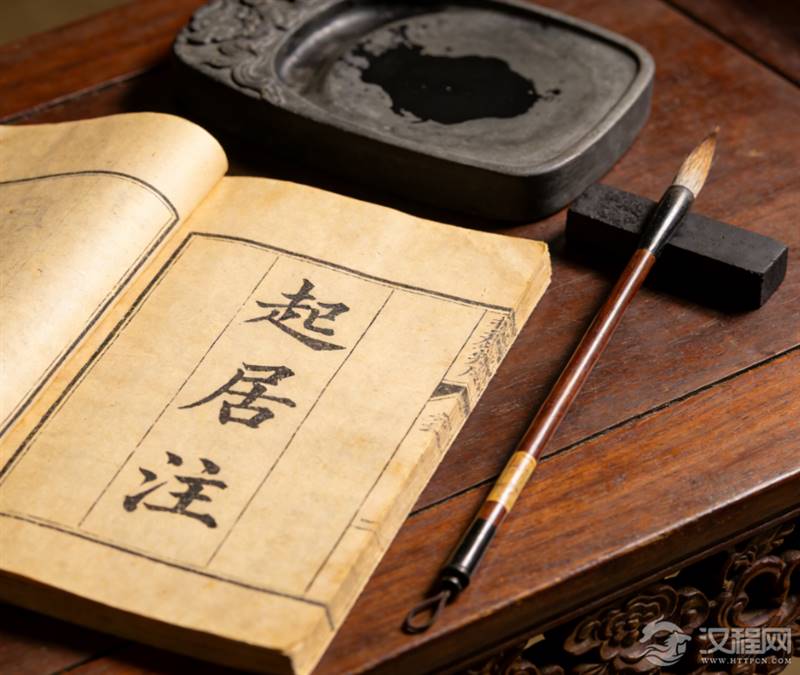 起居注
汉程网
WWW.HTTPCN.COM